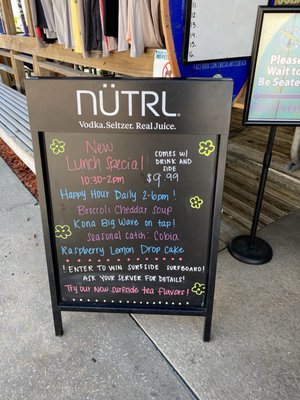 NÜTRL
VODKA+SELTZER
Please
Wait to
Be Seated
NÜTRL
Vodka. Seltzer. Real Juice.
New
Lunch Special!
10:30-2pm
COMES W/
DRINK AND
SIDE
$9.99
Happy Hour Daily 2-6pm!
Broccoli Cheddar Soup
Kona Big Wave on tap!
Seasonal Catch: Cobia
Raspberry Lemon Drop Cake
! ENTER TO WIN SURFSIDE SURFBOARD!
ASK YOUR SERVER FOR DETAILS!
Try our New surfside tea flavors!